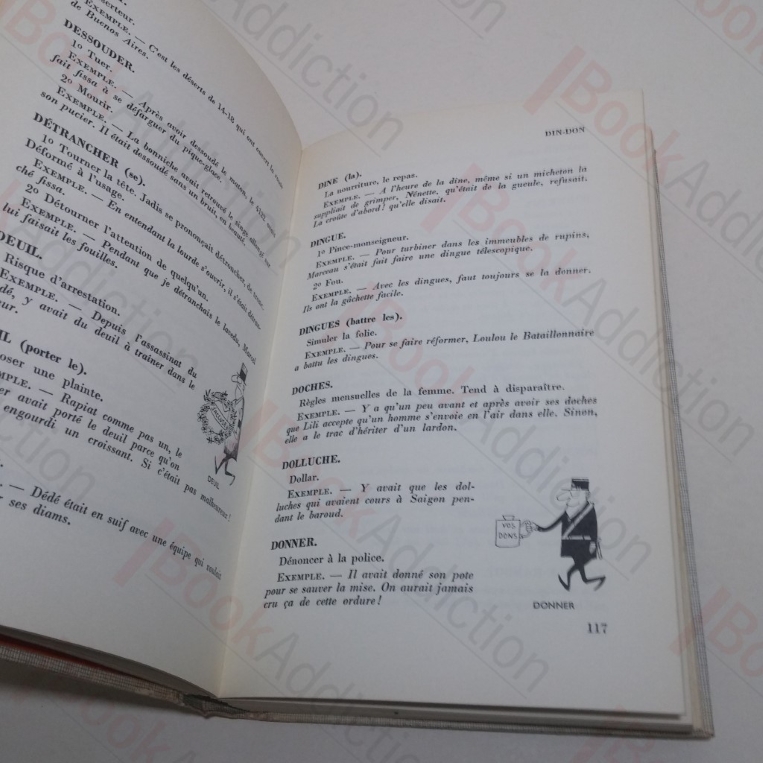 serteur.
EXEMPLE. — C'est les déserts de 14-18 qui ont
de Buenos Aires.
DESSOUDER.
1º Tuer.
EXEMPLE. — Après avoir dessoudé le
fait fissa à se défarguer du pique-glace.
2º Mourir.
EXEMPLE. — La bonniche avait
son pucier. Il était dessoudé sans un bruit, en
DÉTRANCHER (se).
1º Tourner la tête. Jadis se prononçait détroncher
Déformé à l'usage.
EXEMPLE. — En entendant la lourde s'ouvrir, il s'était
ché fissa.
2º Détourner l'attention de quelqu'un.
EXEMPLE. — Pendant que je détranchais le
lui faisait les fouilles.
DEUIL.
Risque d'arrestation.
EXEMPLE. — Depuis l'assassinat du
dé, y avait du deuil à traîner dans le
eur.
IL (porter le).
oser une plainte.
MPLE. — Rapiat comme pas un, le
er avait porté le deuil parce qu'on
engourdi un croissant. Si c'était pas malheureux!
DEUIL
— Dédé était en suif avec une équipe qui voulait
ses diams.
DIN-DON
DINE (la).
La nourriture, le repas.
EXEMPLE. — A l'heure de la dine, même si un micheton la
suppliait de grimper, Nénette, qu'était de la gueule, refusait.
La croûte d'abord! qu'elle disait.
DINGUE.
1º Pince-monseigneur.
EXEMPLE. — Pour turbiner dans les immeubles de rupins,
Marceau s'était fait faire une dingue télescopique.
2º Fou.
EXEMPLE. — Avec les dingues, faut toujours se la donner.
Ils ont la gâchette facile.
DINGUES (battre les).
Simuler la folie.
EXEMPLE. — Pour se faire réformer, Loulou le Bataillonnaire
a battu les dingues.
DOCHES.
Règles mensuelles de la femme. Tend à disparaître.
EXEMPLE. — Y a qu'un peu avant et après avoir ses doches
que Lili accepte qu'un homme s'envoie en l'air dans elle. Sinon,
elle a le trac d'hériter d'un lardon.
DOLLUCHE.
Dollar.
EXEMPLE. — Y avait que les dol-
luches qui avaient cours à Saigon pen-
dant le baroud.
DONNER.
Dénoncer à la police.
EXEMPLE. — Il avait donné son pote
pour se sauver la mise. On aurait jamais
cru ça de cette ordure!
VOS
DONS
DONNER
117
BookAddiction